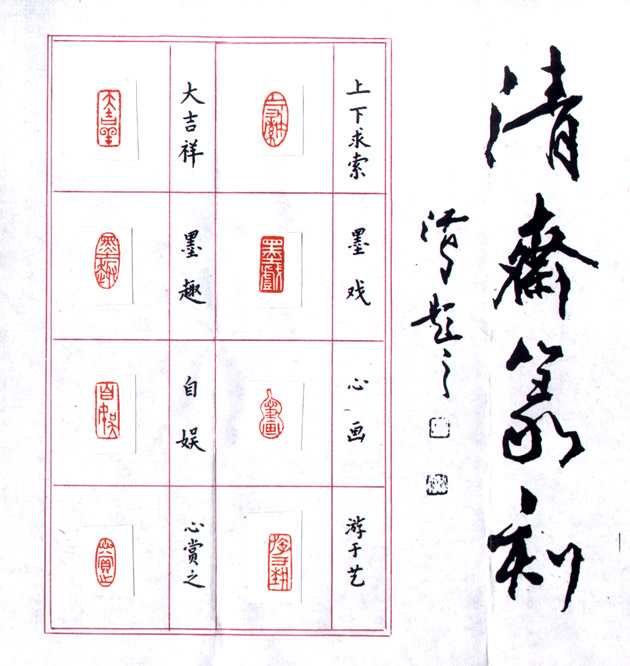 清斋篆刻
题之
上下求索
墨戏
心画
游于艺
大吉祥
墨趣
自娱
心赏之